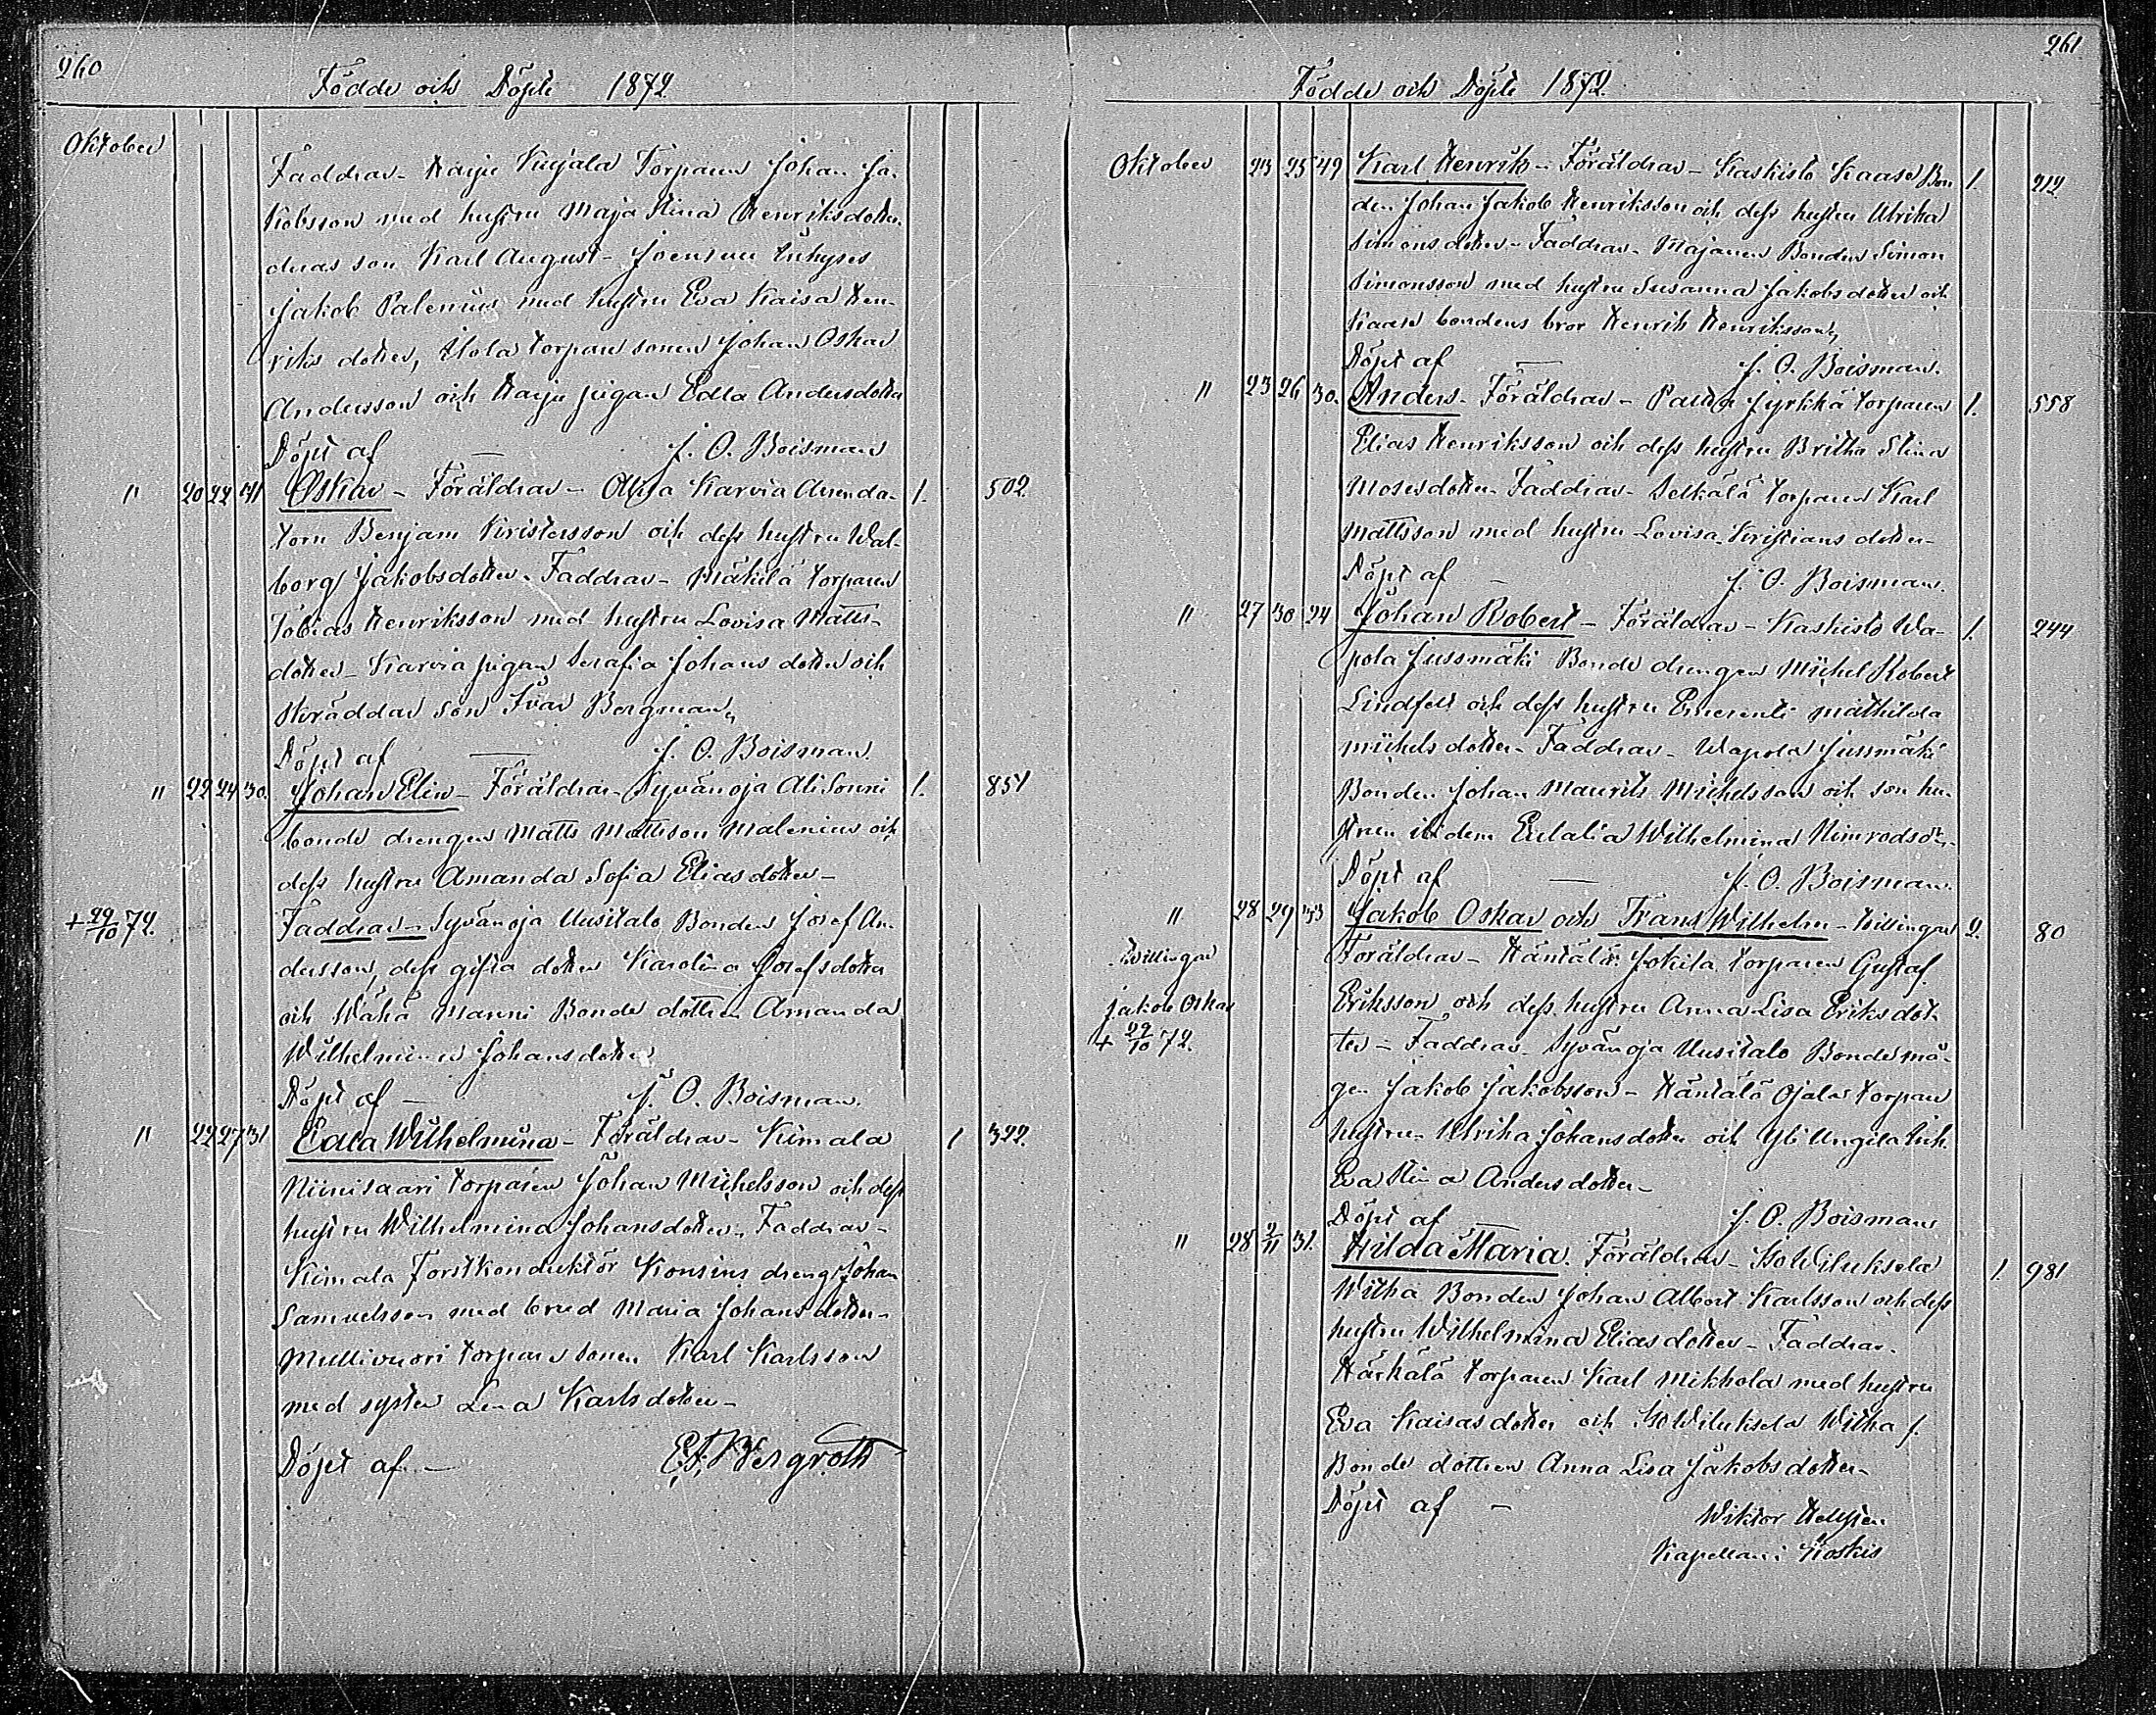 260
Födde och Döpte 1872.
Oktober
Faddrar - Harju Kujala Torparen Johan Ja-
kobsson med hustru Maja Stina Henriksdotter
deras son Karl August - Joensuu Inhyses
Jakob Palenius med hustru Eva Kaisa Hen-
riks dotter, Ylola torpare sonen Johan Oskar
Andersson och Harju pigan Edla Andersdotter
Döpt af — J. O. Boisman
" 20 22 41 Oskar - Föräldrar - Karvia Arrenda- 1. 502.
torn Benjam Kristersson och dess hustru Wal-
borg Jakobsdotter - Faddrar - Mäkilä torparen
Tobias Henriksson med hustru Lovisa Matts-
dotter - Karvia pigan Serafia Johans dotter och
Skräddar son Ivar Bergman,
Döpt af — J. O. Boisman.
" 22 24 30. Johan Elin - Föräldrar - Syvänoja Ali Sonni 1. 851
bonde drengen Matts Mattsson Malenius och
dess hustru Amanda Sofia Elias dotter -
+ 29/10 72. Faddrar - Syvänoja Uusitalo Bonden Josef An-
dersson, dess gifta dotter Karolina Josefsdotter
och Wähä Manni Bonde dottren Amanda
Wilhelmina Johansdotter
Döpt af — J. O. Boisman.
" 22 27 31 Edla Wilhelmina - Föräldrar - Kimala 1 322.
Niinisaari torparen Johan Michelsson och dess
hustru Wilhelmina Johansdotter - Faddrar -
Kimala Forstkonduktör Konsins dreng Johan
Samuelsson med brud Maria Johans dotter -
Mullivuori torpare sonen Karl Karlsson
med syster Lena Karls dotter -
Döpt af — Bergroth
261
Födde och Döpte 1872.
Oktober 23 25 49 Karl Henrik - Föräldrar - Kaskisto Kaase Bon 1. 212.
den Johan Jakob Henriksson och dess hustru Ulrika
Simons dotter - Faddrar - Majanen Bonden Simon
Simonsson med hustru Susanna Jakobs dotter och
Kaase bondens bror Henrik Henriksson,
Döpt af — J. O. Boisman.
" 23 26 30. Anders - Föräldrar - Jyrkkä torparen 1. 558
Elias Henriksson och dess hustru Britha Stina
Mosesdotter - Faddrar - Selkälä torparen Karl
Mattsson med hustru Lovisa Kristians dotter -
Döpt af - J. O. Boisman.
" 27 30 24 Johan Robert - Föräldrar - Kaskisto Wa- 1. 244
pola Jussmäki Bonde drengen Michel Robert
Lindfelt och dess hustru Emerenti Mathilda
Michels dotter - Faddrar - Wapola Jussmäki
Bonden Johan Maurits Michelsson och son hu-
strun ibidem Eulalia Wilhelmina Nimrodsdr.
Döpt af — J. O. Boisman.
" 28 29 33 Jakob Oskar och Frans Wilhelm - tvillingar 2. 80
Tvillingar
Föräldrar - Häntälä Jokila torparen Gustaf
Jakob Oskar
Eriksson och dess hustru Anna Lisa Eriksdot-
+ 29/10 72.
ter - Faddrar - Syvänoja Uusitalo Bonde må-
gen Jakob Jakobsson - Häntälä Ojala torpare
hustru Ulrika Johans dotter och Yli Ungila Inh.
Eva Stina Anders dotter -
Döpt af J. O. Boisman
" 28 2/11 31. Hilda Maria. Föräldrar - Iso Wiluksela 1. 981
Witka Bonden Johan Albert Karlsson och dess
hustru Wilhelmina Elias dotter - Faddrar -
Härkälä torparen Karl Mikkola med hustru
Eva Kaisas dotter och Iso Wiluksela Witka f.
Bonde dottren Anna Lisa Jakobs dotter -
Döpt af - Wiktor
Kapellan i Koskis